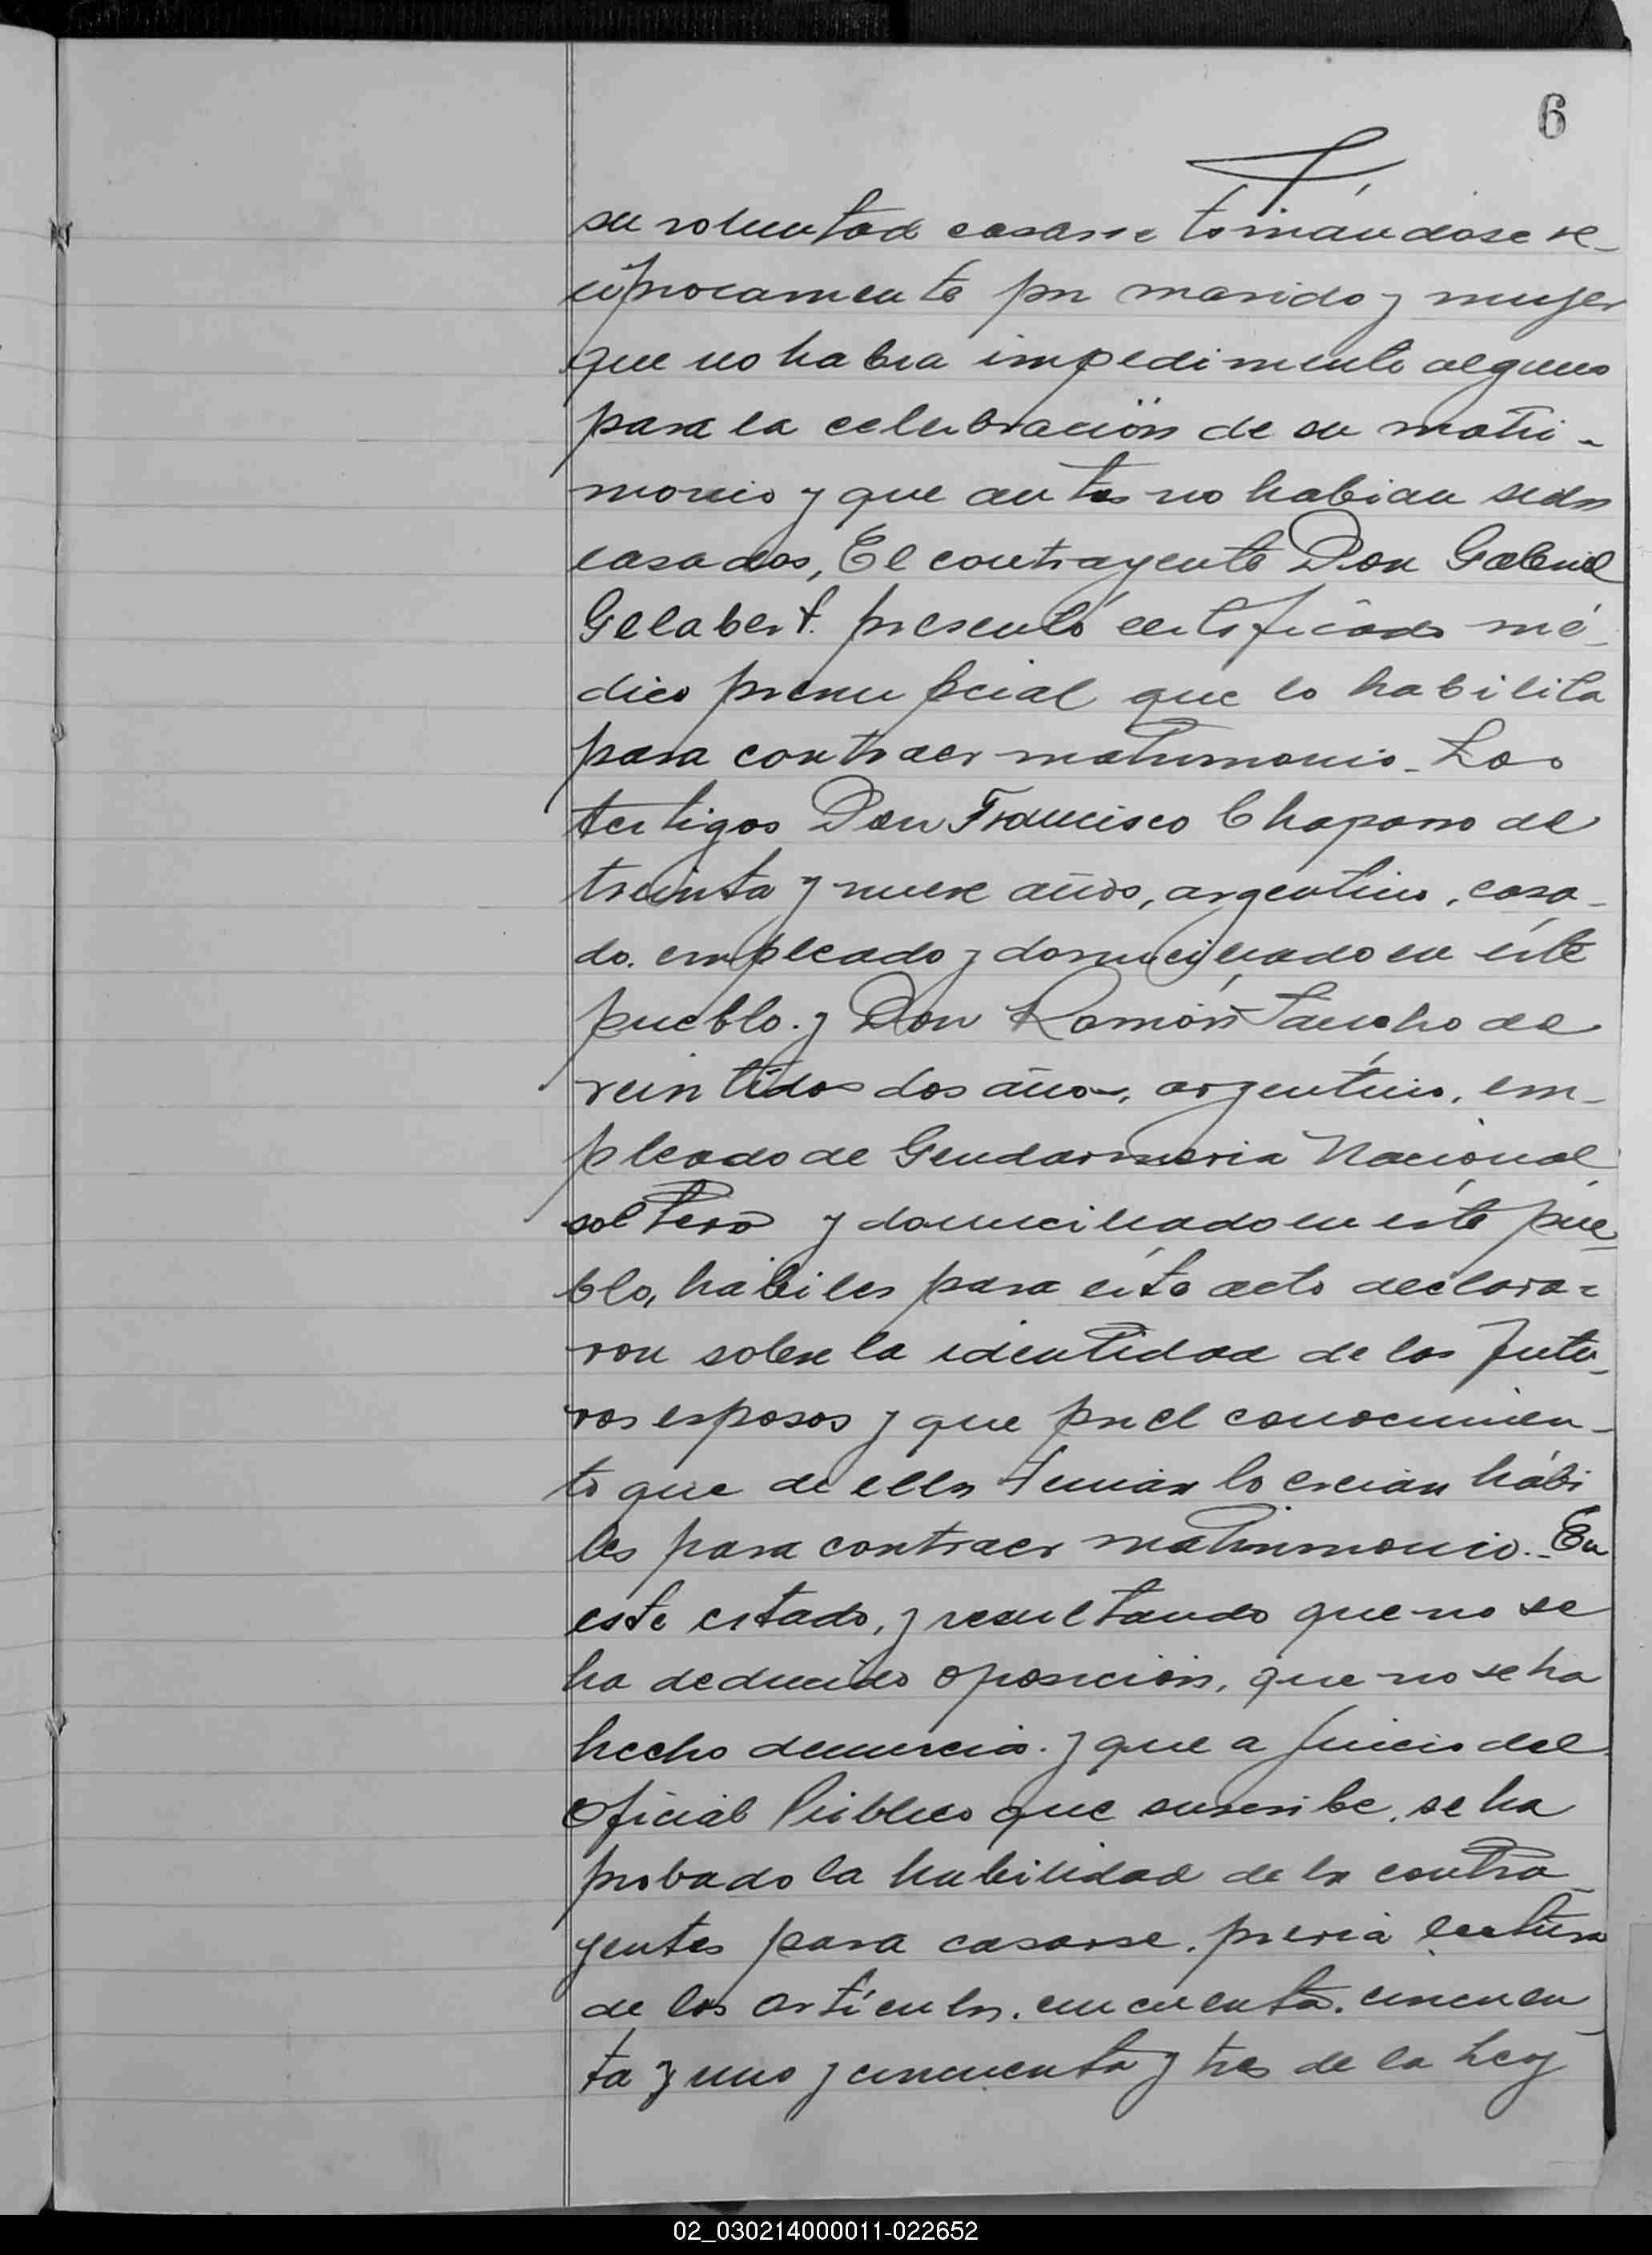 6
su voluntad casarse tomándose re-
cíprocamente por marido y mujer
que no habia impedimento alguno
para la celebración de su matri-
monio y que antes no habian sido
casados, El contrayente Don Gabriel
Gelabert. presentó certificado mé-
dico prenupcial que lo habilita
para contraer matrimonio_ Los
testigos Don Francisco Chaparro de
treinta y nueve años, argentino, casa-
do. empleado y domiciliado en éste
pueblo. y Don Ramón Sancho de
veintidos dos años, argentino, em-
pleado de Gendarmeria Nacional
soltero y domiciliado en éste pue-
blo, hábiles para éste acto declara=
ron sobre la identidad de los futu-
ros esposos y que por el conocimien-
to que de ellos tenian lo creian hábi
les para contraer matrimonio._ En
este estado, y resultando que no se
ha deducido oposición, que no se ha
hecho denuncia. y que a juicio del
Oficial Público que suscribe, se ha
probado la habilidad de los contra-
yentes para casarse. previa lectura
de los artículos. cincuenta. cincuen-
ta y uno y cincuenta y tres de la Ley
02_030214000011-022652